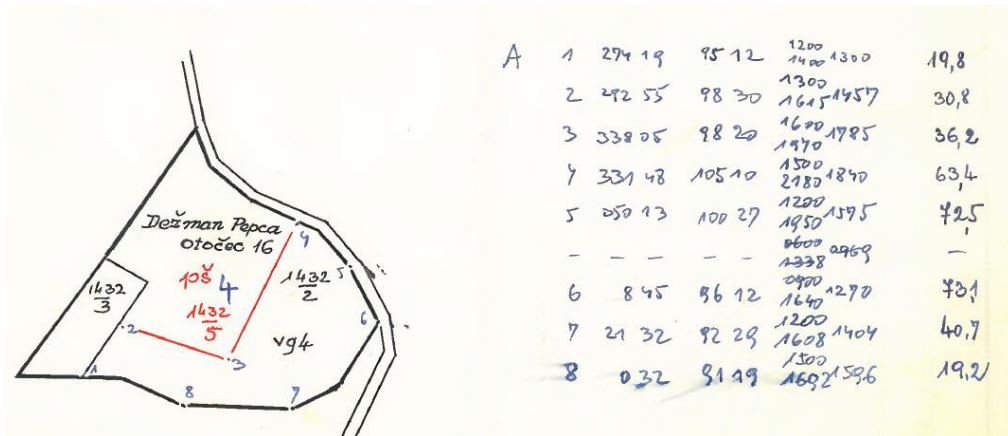 Dežman Pepca
otočec 16
1432
3
pš 4
1432
5
1432
2
vg4
1
2
3
4
5
6
7
8
A 1 274 19 95 12 1200 1400 1300 19,8
2 292 55 98 30 1300 1615 1457 30,8
3 338 05 98 20 1600 1970 1785 36,2
4 331 48 105 10 1500 2180 1840 63,4
5 050 13 100 27 1200 1950 1575 72,5
– – – – – 0600 1338 0969 –
6 8 45 96 12 0900 1640 1270 73,1
7 21 32 92 29 1200 1608 1404 40,7
8 0 32 91 19 1500 1692 1596 19,2